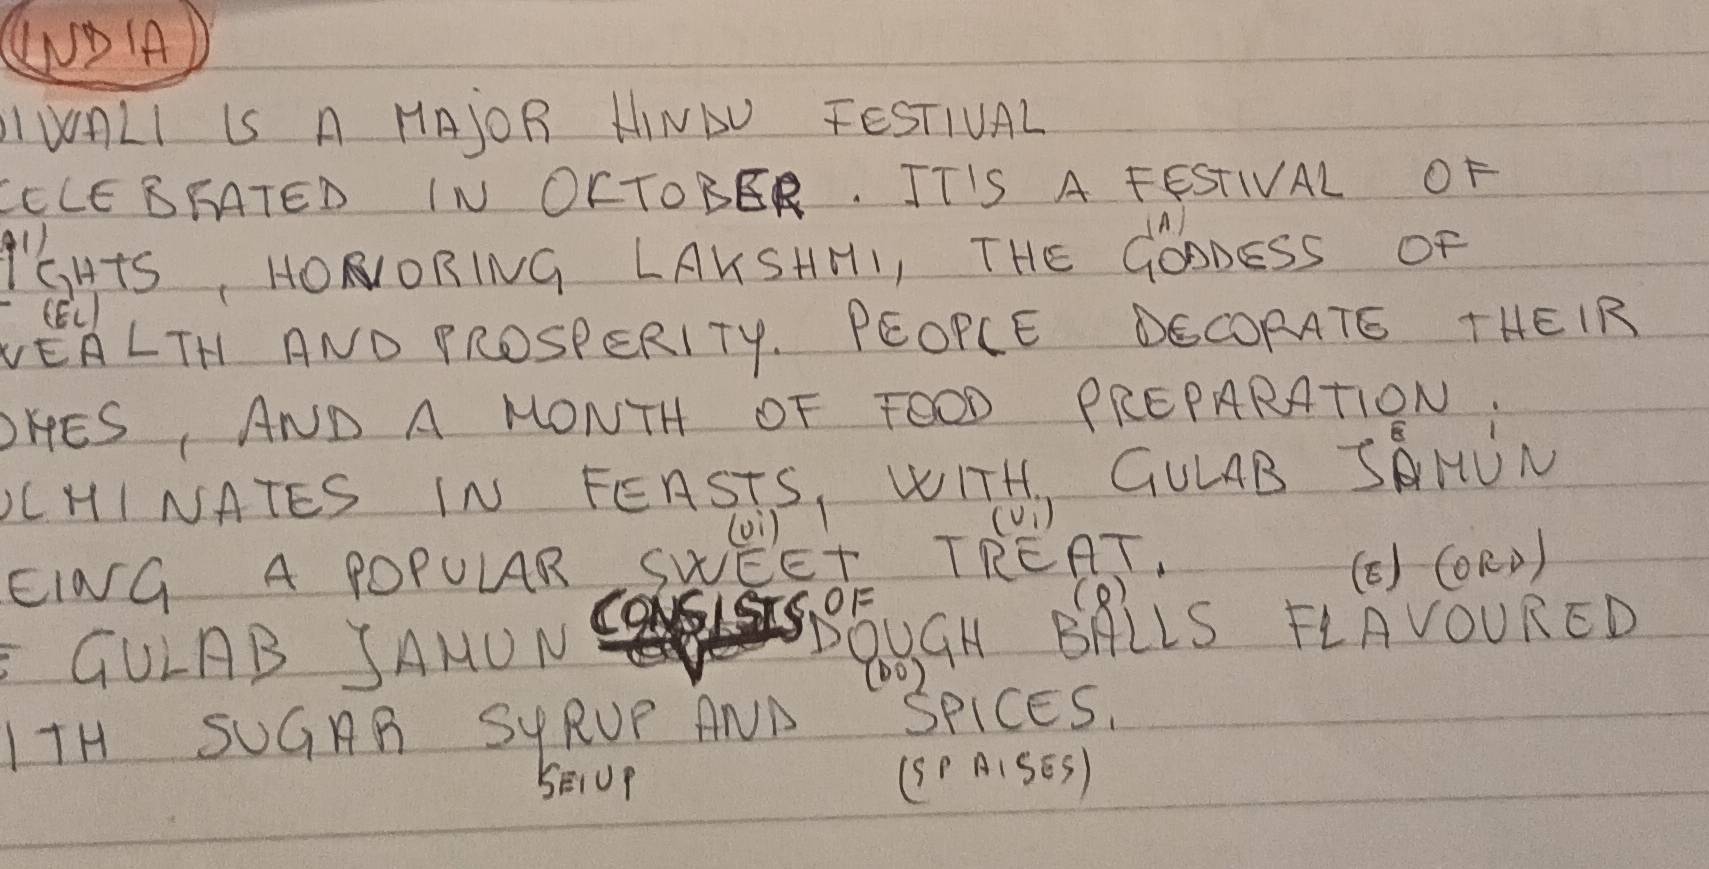 INDIA
DIWALI IS A MAJOR HINDU FESTIVAL
CELEBRATED IN OCTOBER. IT'S A FESTIVAL OF
(AI) (A)
IGHTS, HONORING LAKSHMI, THE GODDESS OF
(EL)
WEALTH AND PROSPERITY. PEOPLE DECORATE THEIR
OMES, AND A MONTH OF FOOD PREPARATION.
E
ULMINATES IN FEASTS, WITH, GULAB JAMUN
(Ui) (Ui)
EING A POPULAR SWEET TREAT.
CONSISTS OF (O) (E) (ORD)
E GULAB JAMUN DOUGH BALLS FLAVOURED
(DO)
ITH SUGAR SYRUP AND SPICES.
SEIUP (SPAISES)